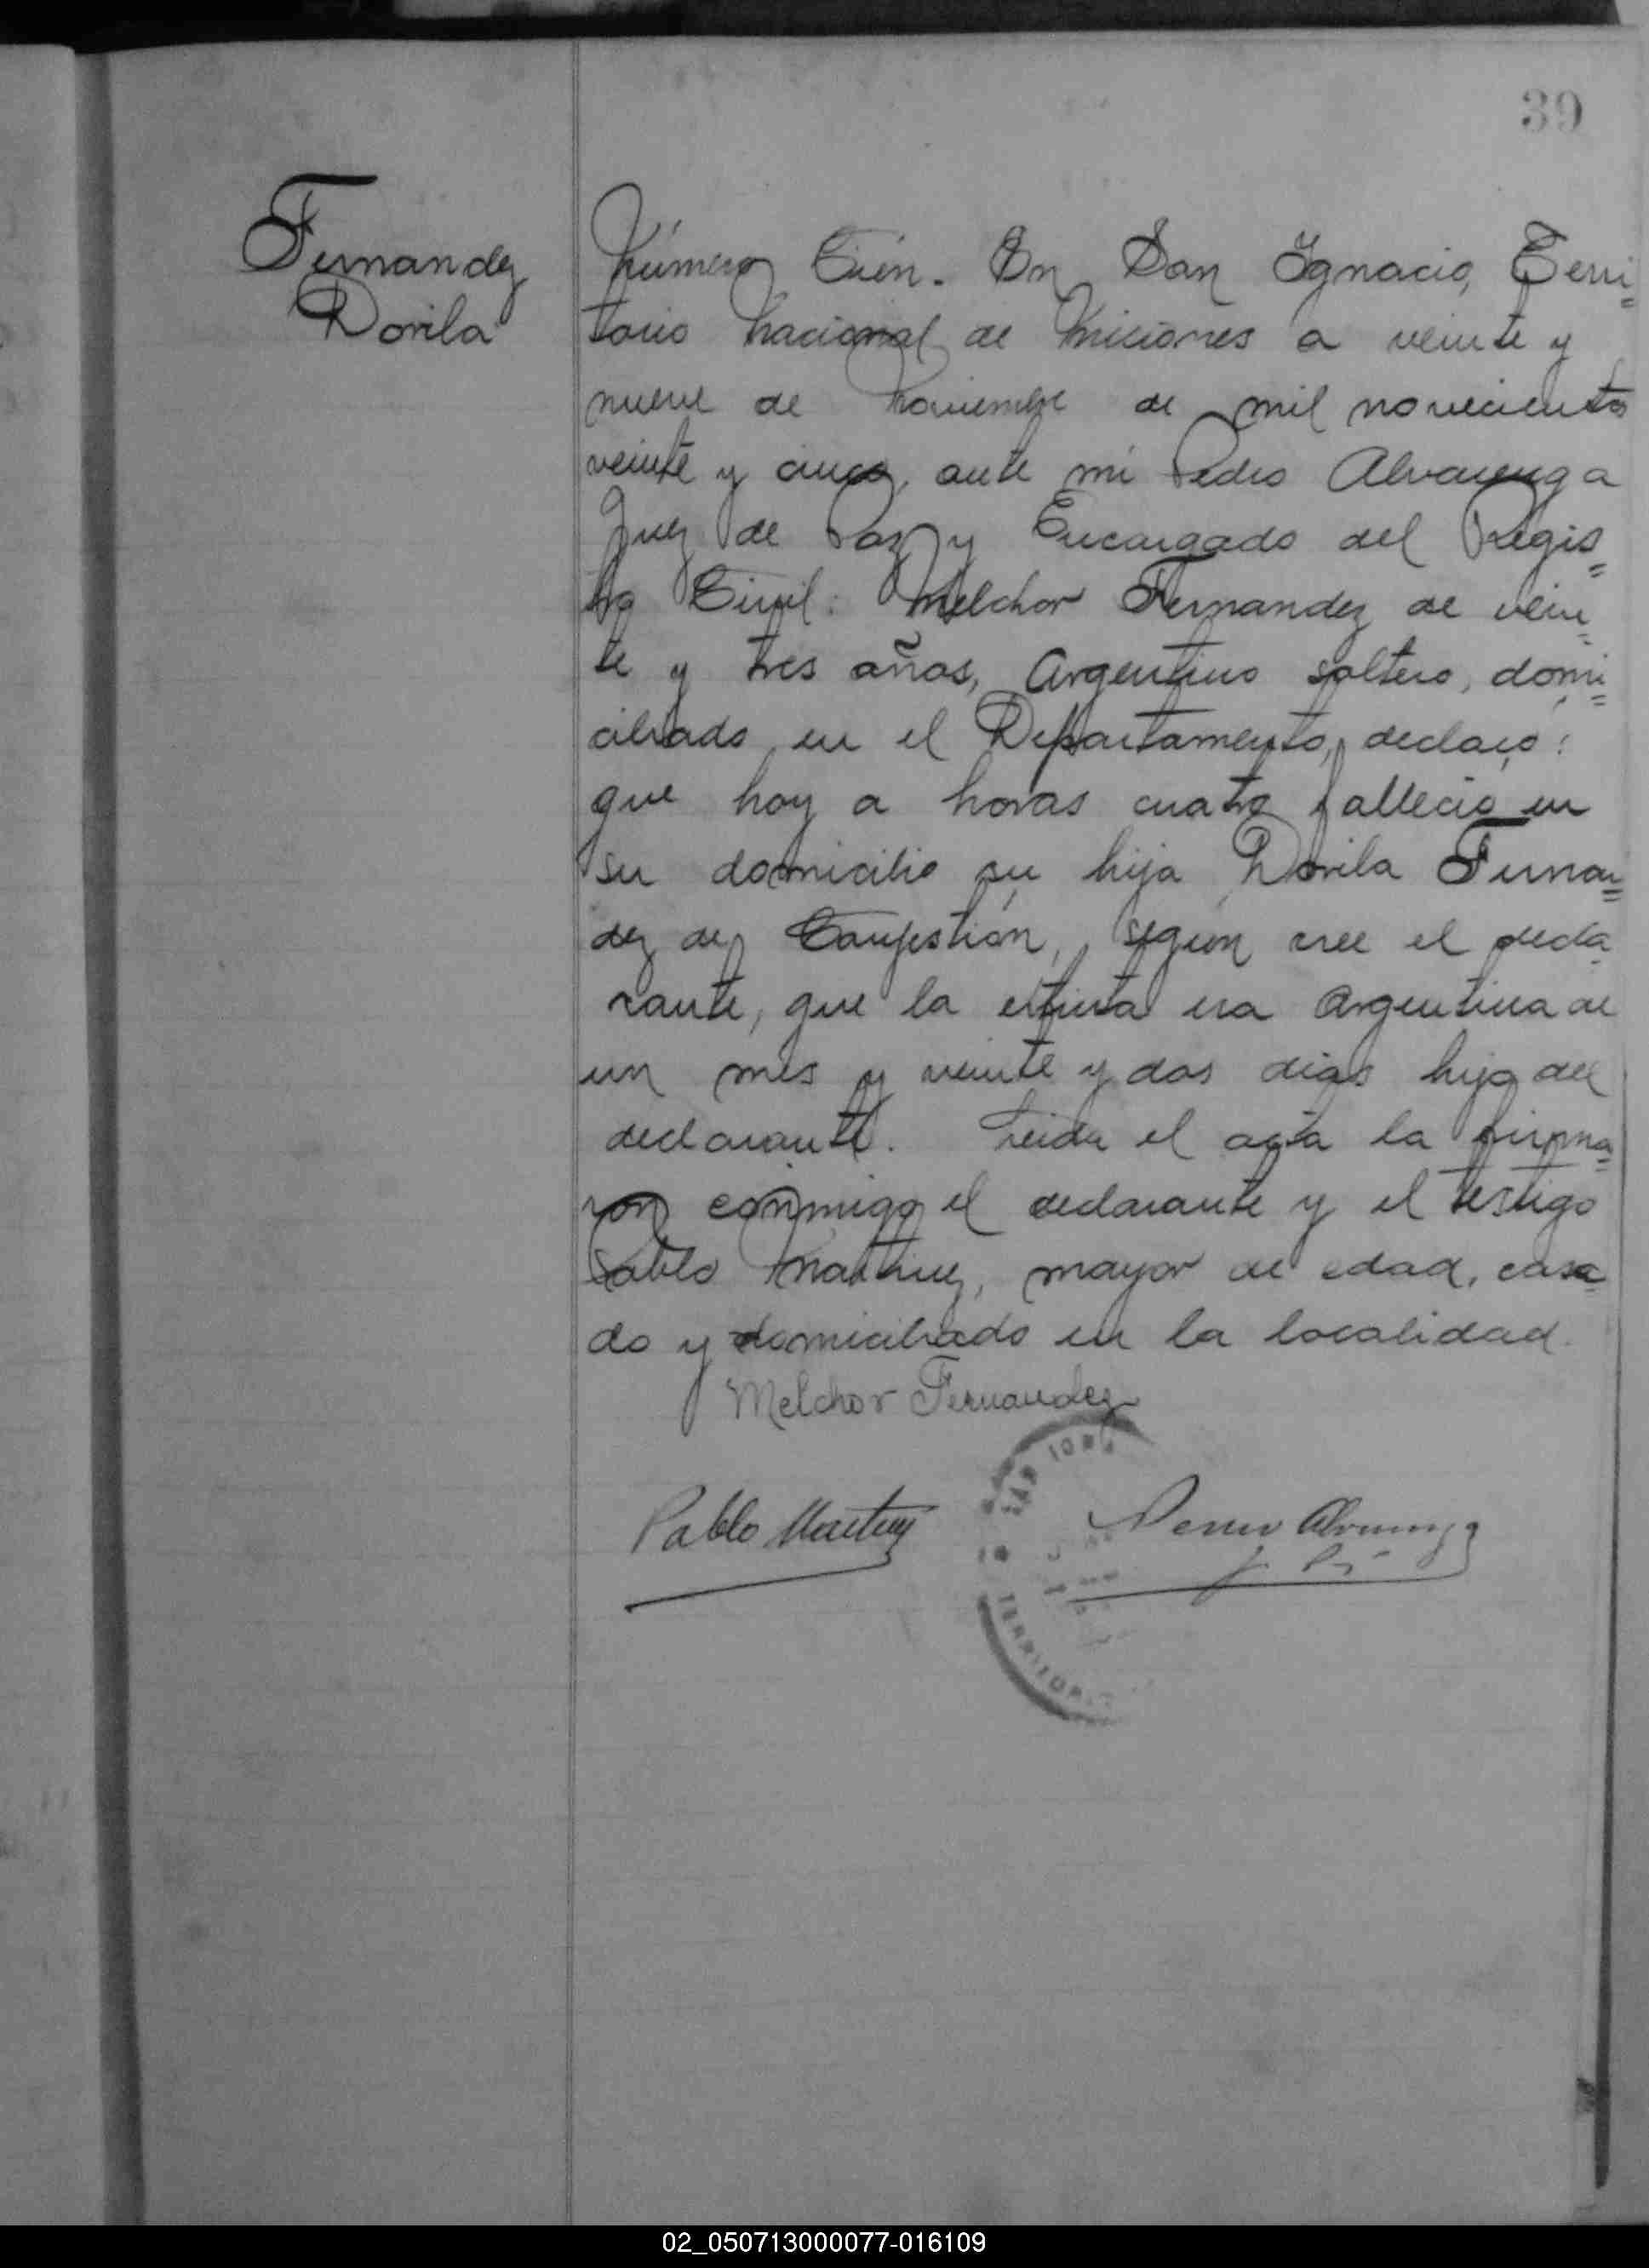 39
Fernandez
Dorila
Número Cién. En San Ignacio, Terri=
torio Nacional de Misiones a veinte y
nueve de Noviembre de mil novecientos
veinte y cinco, ante mi Pedro Alvarenga
Juez de Paz y Encargado del Regis=
tro Civil: Melchor Fernandez de vein=
te y tres años, Argentino soltero, domi=
ciliado en el Departamento, declaró:
que hoy a horas cuatro falleció en
su domicilio su hija Dorila Fernan=
dez de Conjestión, según cree el decla
rante, que la extinta era Argentina de
un mes y veinte y dos dias hija del
declarante. Leida el acta la firma=
ron conmigo el declarante y el testigo
Pablo Martinez, mayor de edad, casa
do y domiciliado en la localidad.
Melchor Fernandez
SAN IGN
Pablo Martinez
Pedro Alvarenga
TERRITORIO
02_050713000077-016109